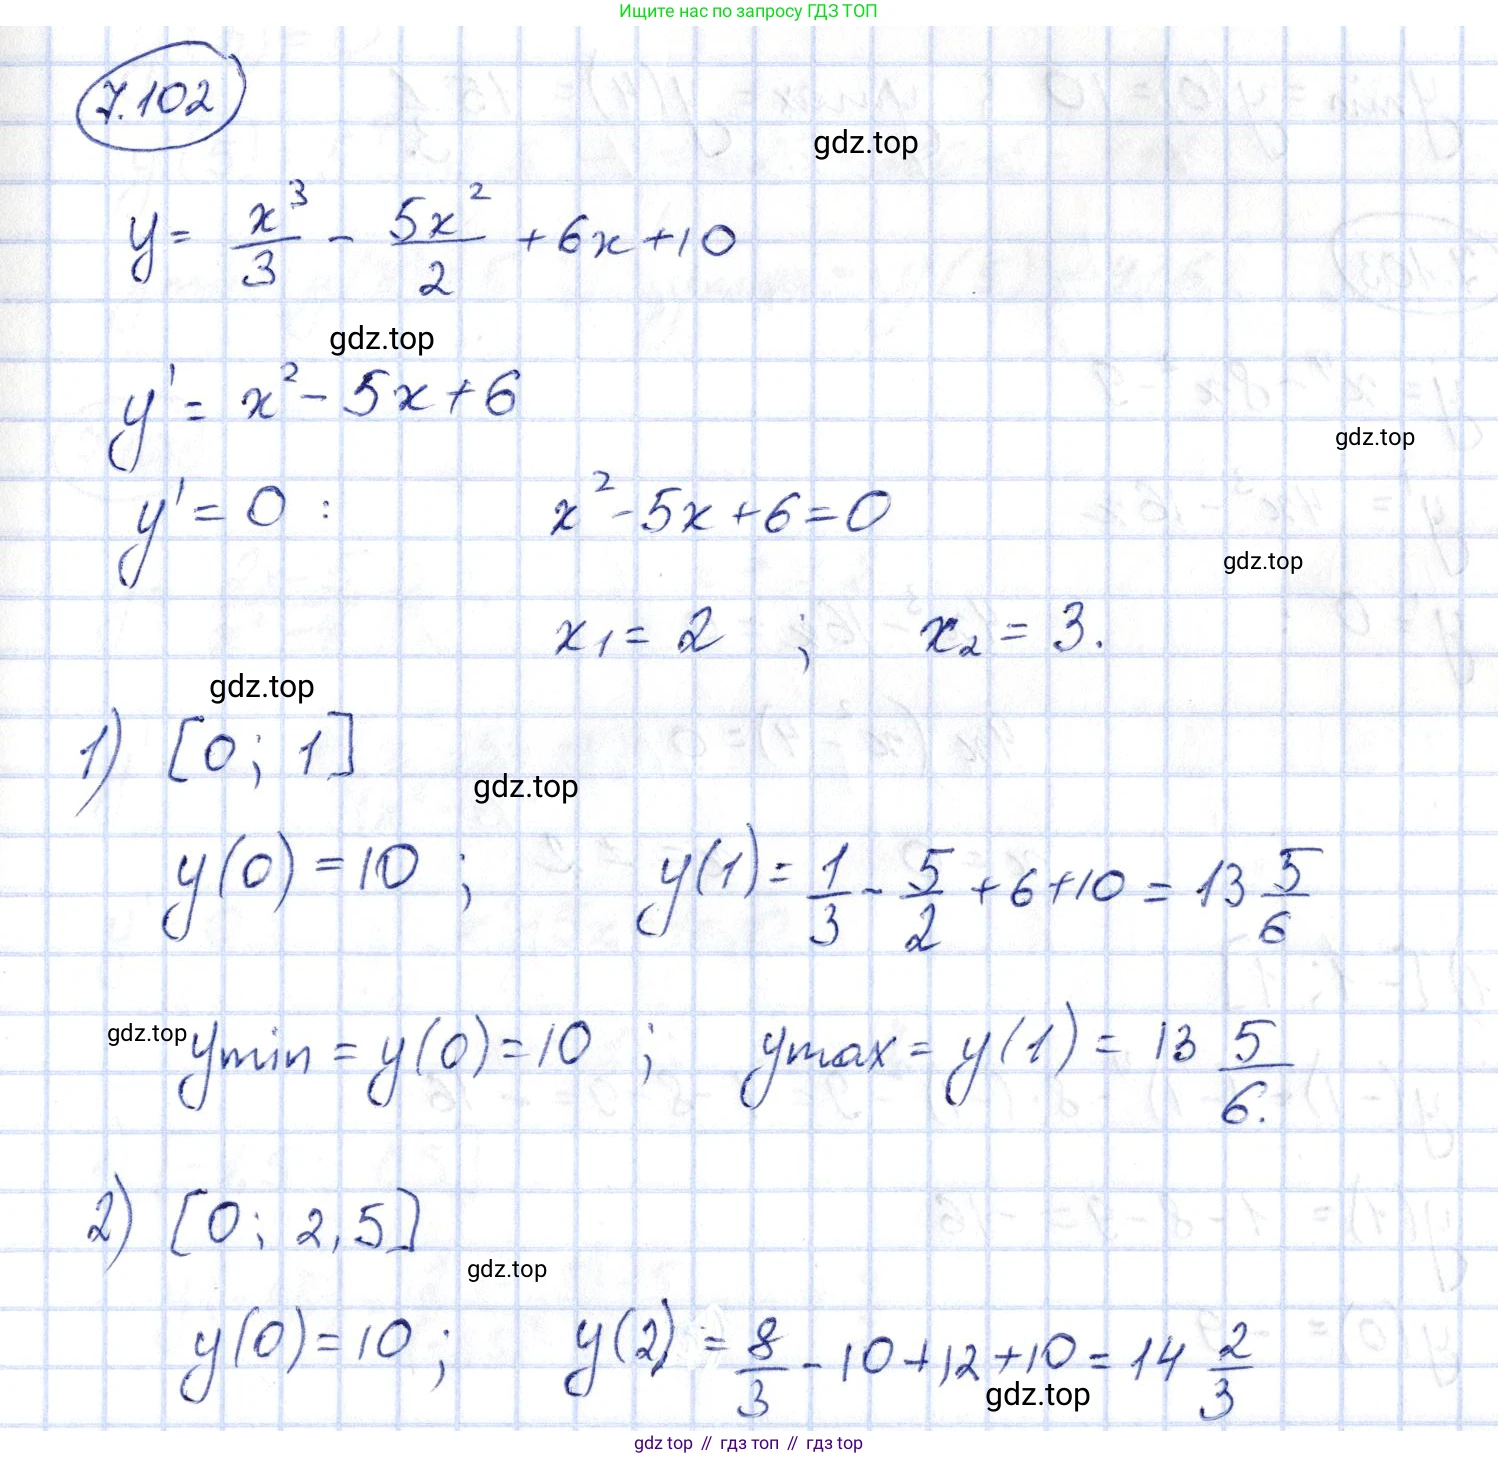 Ищите нас по запросу ГДЗ ТОП
7.102
gdz.top
y = x³/3 - 5x²/2 + 6x + 10
gdz.top
y' = x² - 5x + 6
gdz.top
y' = 0 : x² - 5x + 6 = 0
gdz.top
x₁ = 2 ; x₂ = 3.
gdz.top
1) [0; 1]
gdz.top
y(0) = 10 ; y(1) = 1/3 - 5/2 + 6 + 10 = 13 5/6
gdz.top
ymin = y(0) = 10 ; ymax = y(1) = 13 5/6.
2) [0; 2,5]
gdz.top
y(0) = 10 ; y(2) = 8/3 - 10 + 12 + 10 = 14 2/3
gdz.top
gdz top // гдз топ // гдз top